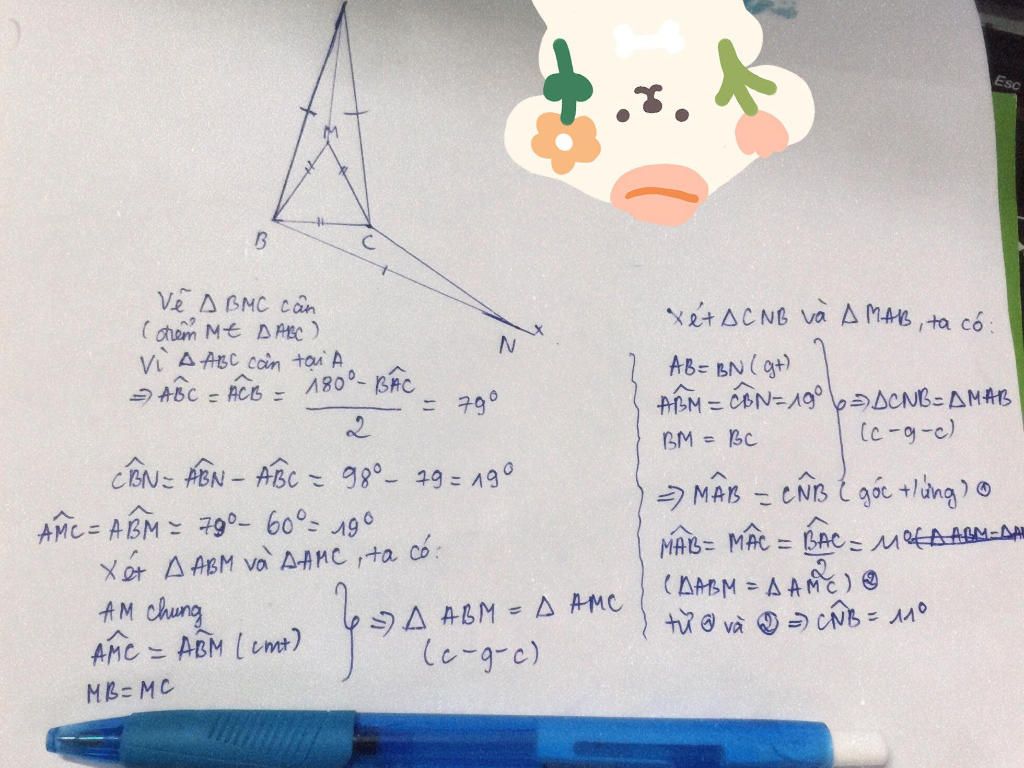 M
B
C
N
x
Vẽ △ BMC cân
(điểm M ∈ △ABC)
Vì △ ABC cân tại A
⇒ ABC^ = ACB^ = (180° - BAC^) / 2 = 79°
CBN^ = ABN^ - ABC^ = 98° - 79 = 19°
AMC^ = ABM^ = 79° - 60° = 19°
Xét △ ABM và △AMC, ta có:
AM chung
AMC^ = ABM^ (cmt)
MB = MC
⇒ △ ABM = △ AMC
(c-g-c)
Xét △CNB và △MAB, ta có:
AB = BN (gt)
ABM^ = CBN^ = 19°
BM = BC
⇒ △CNB = △MAB
(c-g-c)
⇒ MAB^ = CNB^ (góc t/ứng) ①
MAB^ = MAC^ = BAC^ / 2 = 11°
(△ABM = △AMC) ②
từ ① và ② ⇒ CNB^ = 11°
Esc